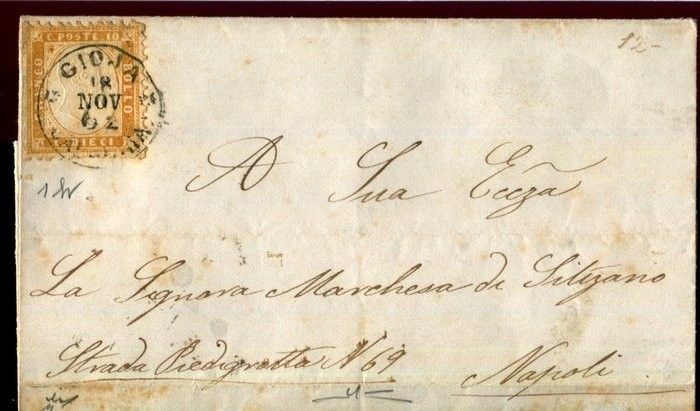 C. POSTE 10
BOLLO
DIECI
GIOJA
18
NOV
62
12-
A Sua Ecc̃za
La Signora Marchesa di Sitizano
Strada Piedigrotta N 69
Napoli